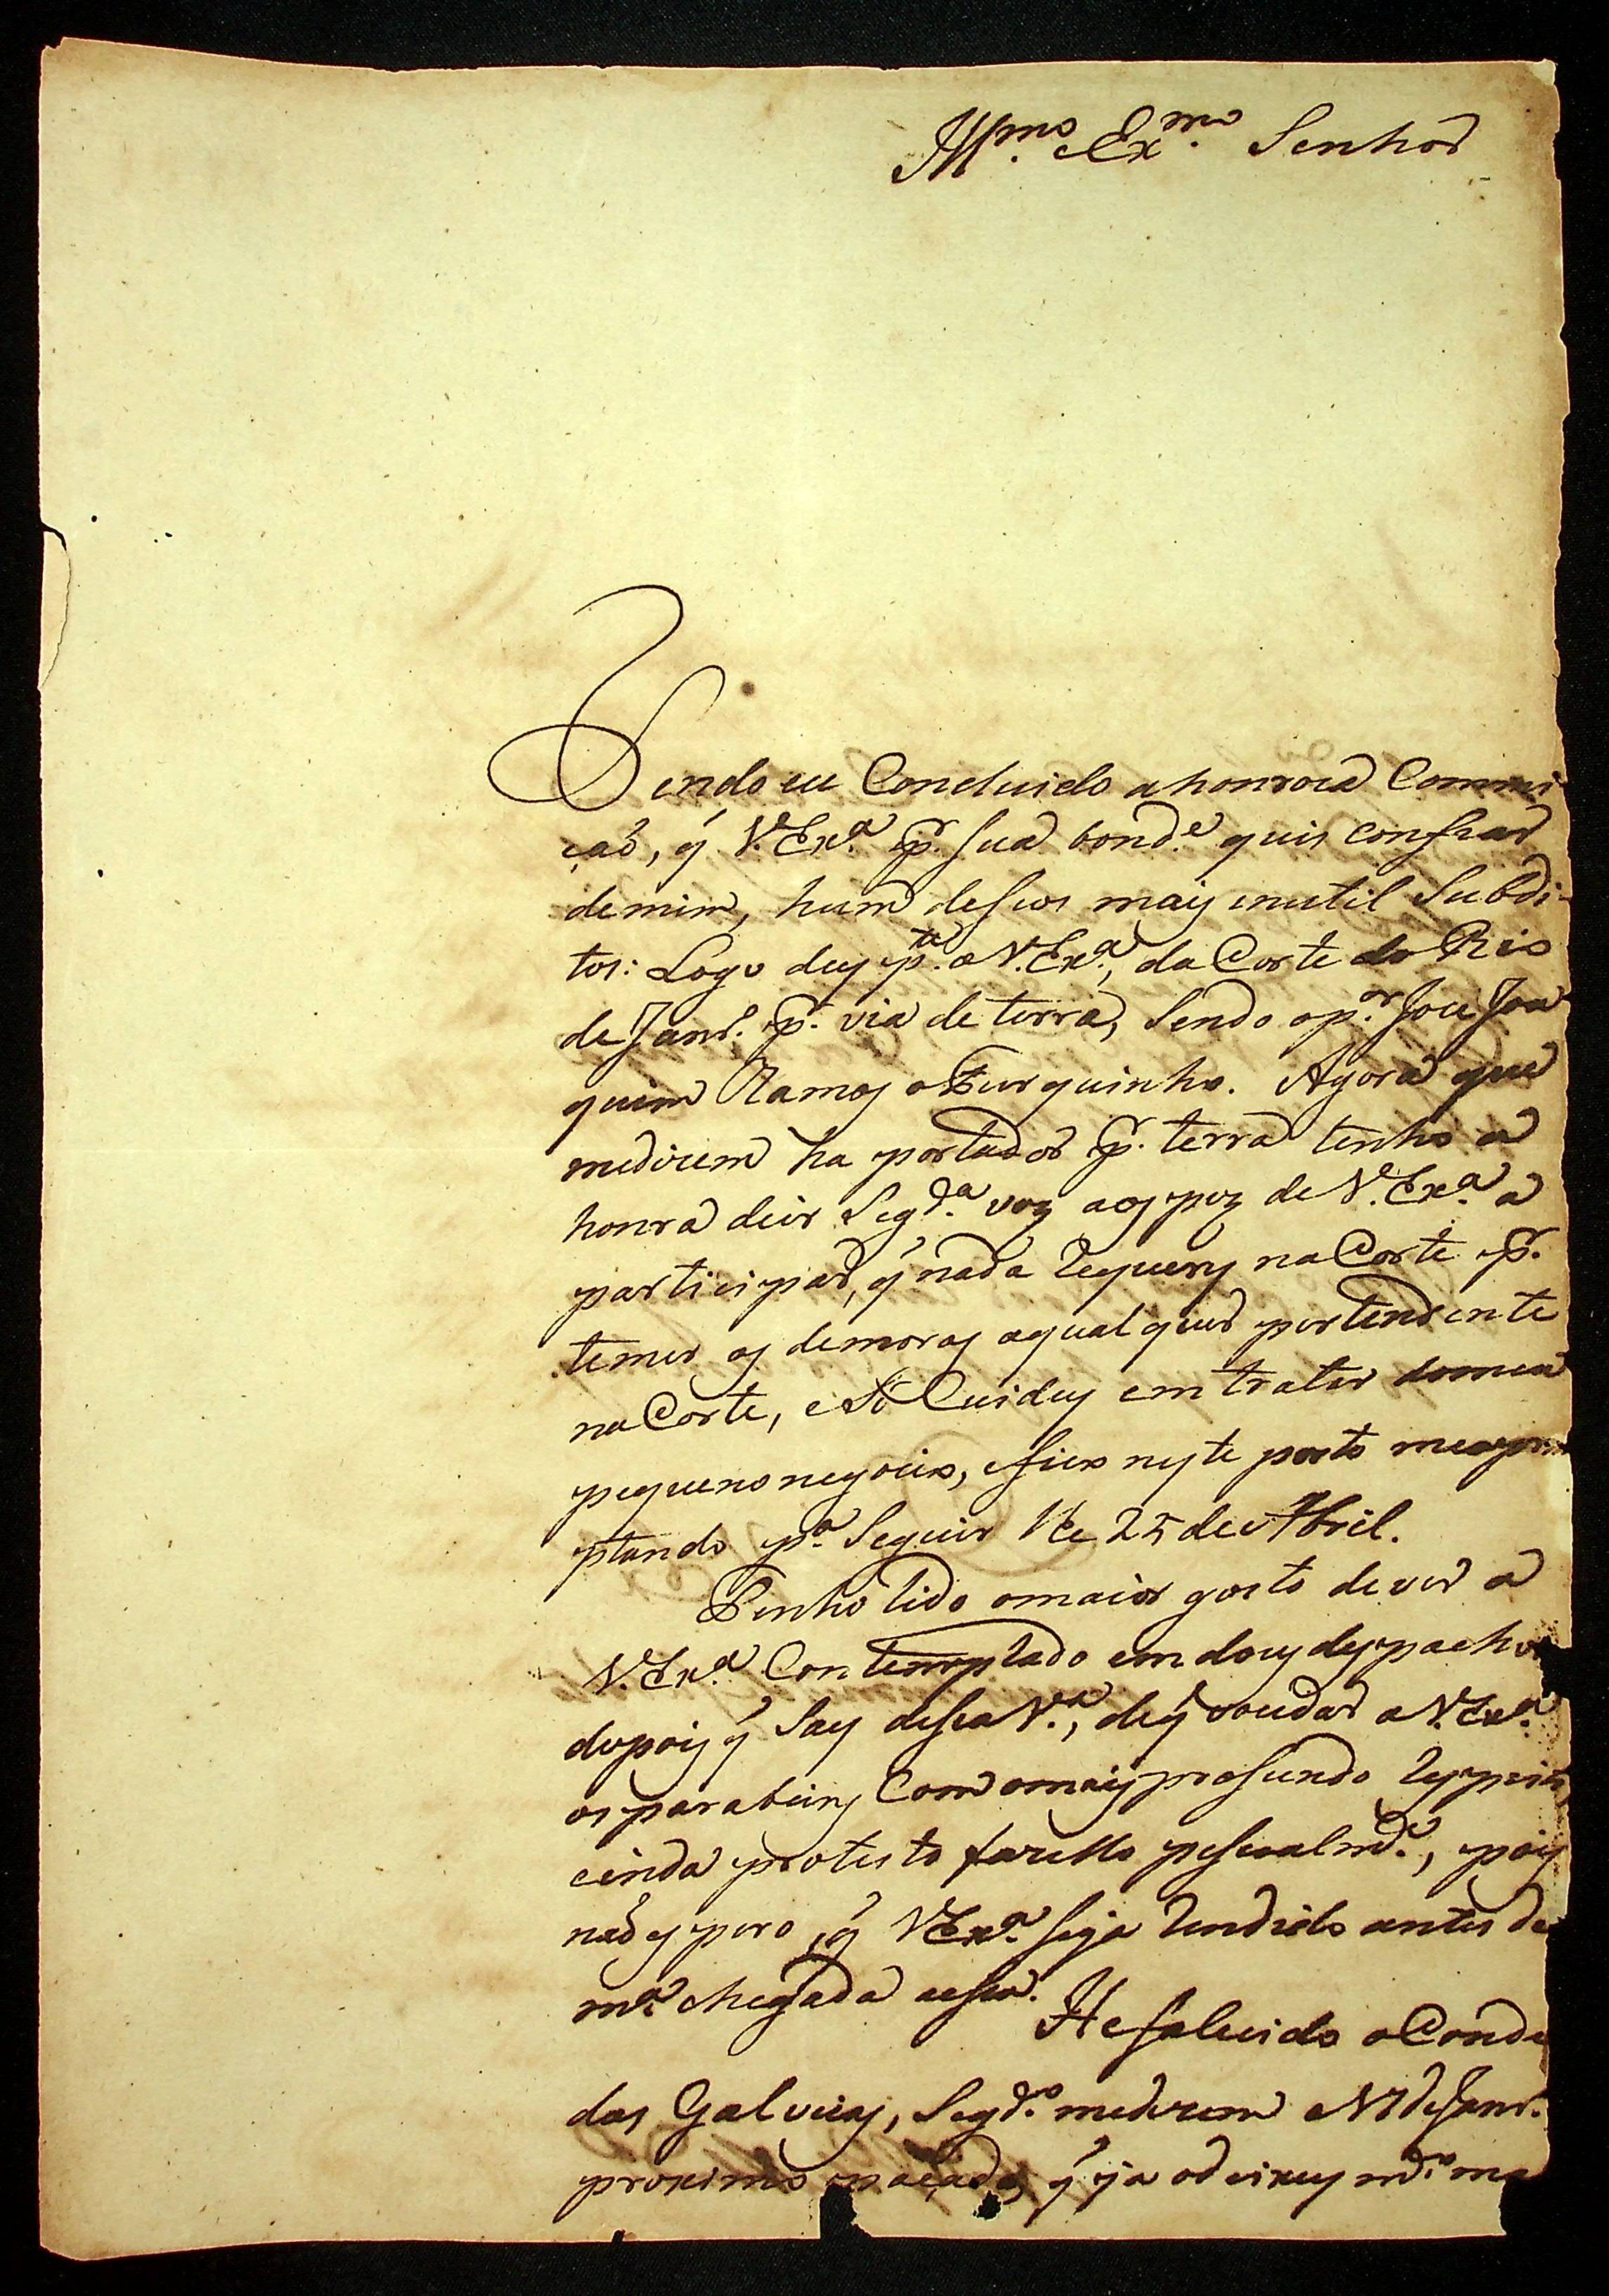 Illmo. Exmo. Senhor
Tendo eu Concluido ahonroza Commi
çaõ, q̃ V.Exa. pr. sua bonde. quis confiar
demim, hum deseos mais inutil Subdi-
tos: Logo dey pte. a V.Exa., da Corte do Rio
de Janro. pr. via de terra, Sendo opor. Joze Joa
quim Ramos oFurquinho. Agora que
medizem ha portador pr. terra tenho a
honra deir Segda. vez aos pez de V.Exa. a
participar, q̃ nada Requery naCorte pr.
temer as demoras aqualquer pertendente
naCorte, e So Cuidey em tratar domeu
pequeno negocio, efico neste porto
ptando pa. Seguir the 25 de Abril.
Tenho tido omaior gosto dever a
V.Exa. Contemplado em dous despachos
depois q̃ Say desea Va., de q̃ vou dar a V.Exa.
os parabeins Com omais profundo Respeito,
eindа protesto fazello pesoalmte., pois
naõ espero, q̃ VExa. seja Rendido antes de
ma. chegada aesea.
He falecido oConde
das Galveias, Segdo. medizem de Janro.
proximo paçado, q̃ ja odeixey mto. ma